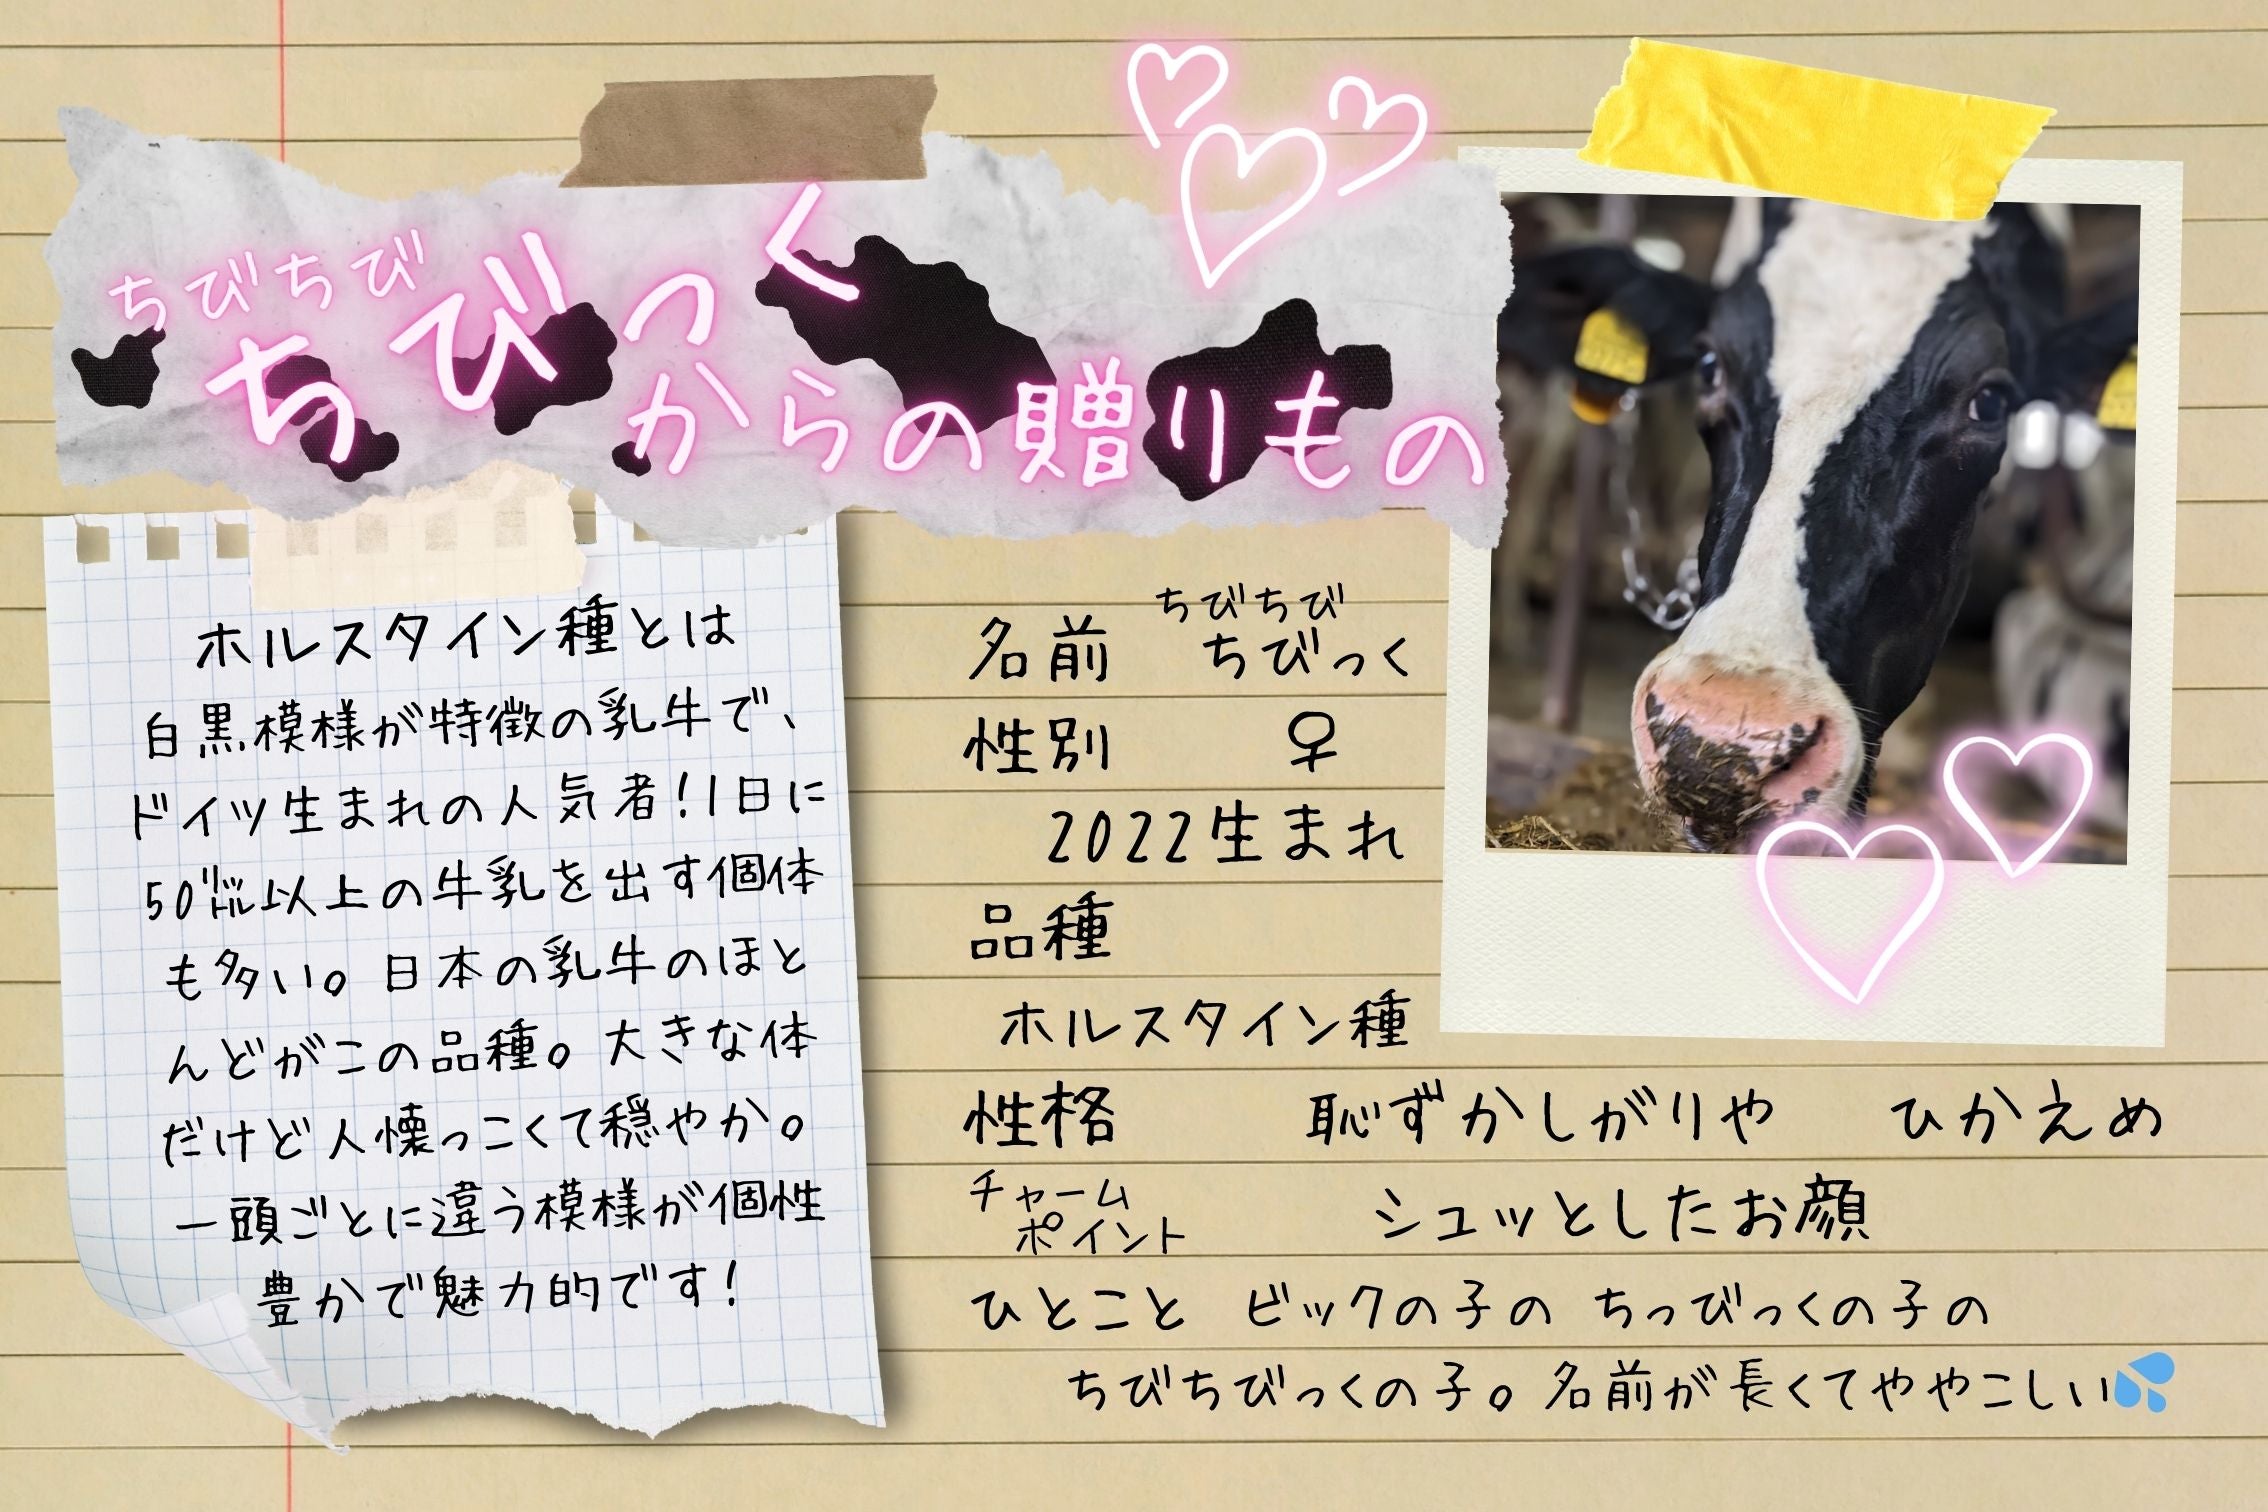 ちびちび
ちびっく
からの贈りもの
ホルスタイン種とは
白黒模様が特徴の乳牛で、
ドイツ生まれの人気者!1日に
50㍑以上の牛乳を出す個体
も多い。日本の乳牛のほと
んどがこの品種。大きな体
だけど人懐っこくて穏やか。
一頭ごとに違う模様が個性
豊かで魅力的です!
ちびちび
名前 ちびっく
性別 ♀
2022生まれ
品種
ホルスタイン種
性格 恥ずかしがりや ひかえめ
チャーム
ポイント シュッとしたお顔
ひとこと ビックの子の ちっびっくの子の
ちびちびっくの子。名前が長くてややこしい💦